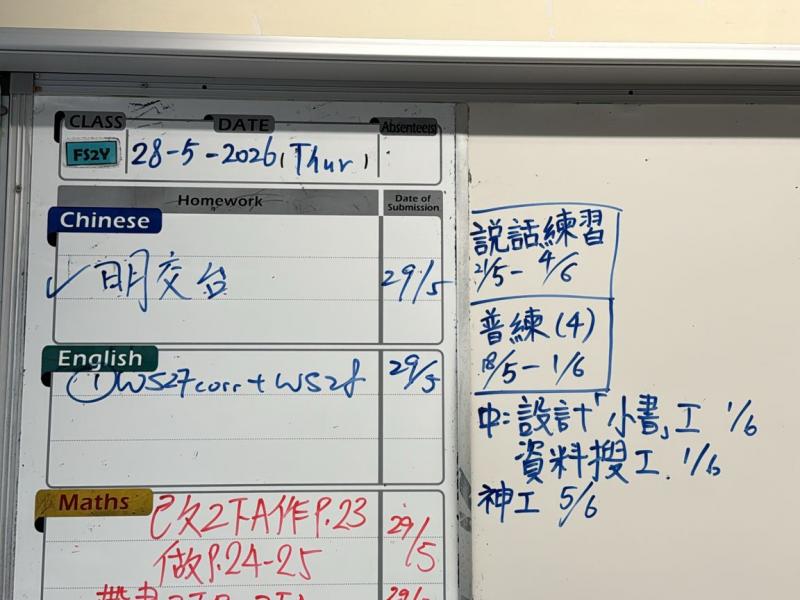 CLASS DATE Absentee(s)
FS2Y 28-5-2026 (Thur)
Homework Date of Submission
Chinese
✓明交台 29/5
English
①WS27corr + WS28 29/5
Maths
已文2下A作P.23 29/5
做P.24-25
説話練習
21/5 - 4/6
普練(4)
18/5 - 1/6
中:設計「小書」工 1/6
資料搜工. 1/6
神工 5/6